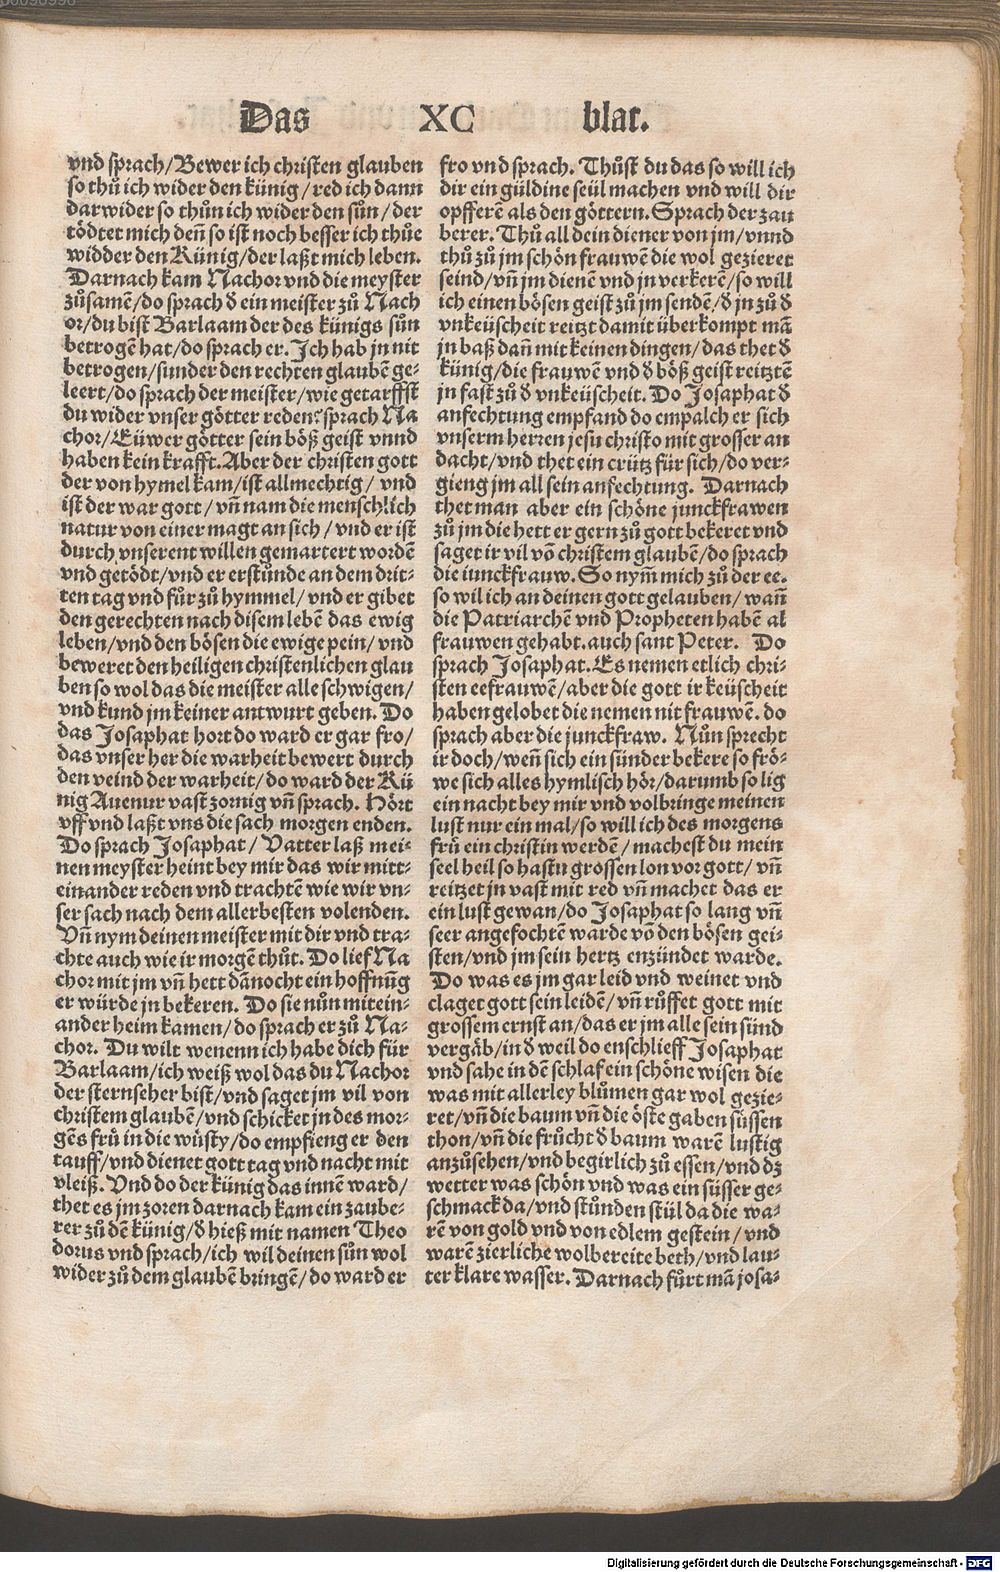 Das XC blat.
vnd sprach/Bewer ich christen glauben
so thů ich wider den künig/red ich dann
darwider so thůn ich wider den sůn/der
tödtet mich deñ so ist noch besser ich thůe
widder den Künig/der laßt mich leben.
Darnach kam Nachor vnd die meyster
zůsamē/do sprach ð ein meister zů Nach
or/du bist Barlaam der des künigs sůn
betrogē hat/do sprach er. Ich hab jn nit
betrogen/sunder den rechten glaubē ge-
leert/do sprach der meister/wie getarffst
du wider vnser götter reden? sprach Na
chor/Eüwer götter sein böß geist vnnd
haben kein krafft. Aber der christen gott
der von hymel kam/ist allmechtig/vnd
ist der war gott/vñ nam die menschlich
natur von einer magt an sich/vnd er ist
durch vnserent willen gemartert wordē
vnd getödt/vnd er erstůnde an dem drit-
ten tag vnd fůr zů hymmel/vnd er gibet
den gerechten nach disem lebē das ewig
leben/vnd den bösen die ewige pein/vnd
beweret den heiligen christenlichen glau
ben so wol das die meister alle schwigen/
vnd kund jm keiner antwurt geben. Do
das Josaphat hort do ward er gar fro/
das vnser her die warheit bewert durch
den veind der warheit/do ward der Kü
nig Auenur vast zornig vñ sprach. Hört
vff vnd laßt vns die sach morgen enden.
Do sprach Josaphat/Vatter laß mei-
nen meyster heint bey mir das wir mitt-
einander reden vnd trachtē wie wir vn-
ser sach nach dem allerbesten volenden.
Vñ nym deinen meister mit dir vnd tra-
chte auch wie ir morgē thůt. Do lief Na
chor mit jm vñ hett dānocht ein hoffnūg
er würde jn bekeren. Do sie nůn mitein-
ander heim kamen/do sprach er zů Na-
chor. Du wilt wenenn ich habe dich für
Barlaam/ich weiß wol das du Nachor
der sternseher bist/vnd saget jm vil von
christem glaubē/vnd schicket jn des mor-
gēs frů in die wüsty/do empfieng er den
tauff/vnd dienet gott tag vnd nacht mit
vleiß. Vnd do der künig das innē ward/
thet es jm zoren darnach kam ein zaube-
rer zů dē künig/ð hieß mit namen Theo
dorus vnd sprach/ich wil deinen sůn wol
wider zů dem glaubē bringē/do ward er
fro vnd sprach. Thůst du das so will ich
dir ein güldine seül machen vnd will dir
opfferē als den göttern. Sprach der zau
berer. Thů all dein diener von jm/vnnd
thů zů jm schön frauwē die wol gezieret
seind/vñ jm dienē vnd jn verkerē/so will
ich einen bösen geist zů jm sendē/ð jn zů ð
vnkeüscheit reitzt damit überkompt mā
jn baß dañ mit keinen dingen/das thet ð
künig/die frauwē vnd ð böß geist reitztē
jn fast zů ð vnkeüscheit. Do Josaphat ð
anfechtung empfand do empalch er sich
vnserm herren jesu christo mit grosser an
dacht/vnd thet ein crütz für sich/do ver-
gieng jm all sein anfechtung. Darnach
thet man aber ein schöne junckfrawen
zů jm die hett er gern zů gott bekeret vnd
saget ir vil vō christem glaubē/do sprach
die iunckfrauw. So nym̄ mich zů der ee.
so wil ich an deinen gott gelauben/wañ
die Patriarchē vnd Propheten habē al
frauwen gehabt. auch sant Peter. Do
sprach Josaphat. Es nemen etlich chri-
sten eefrauwē/aber die gott ir keüscheit
haben gelobet die nemen nit frauwē. do
sprach aber die junckfraw. Nůn sprecht
ir doch/weñ sich ein sünder bekere so frö-
we sich alles hymlisch hör/darumb so lig
ein nacht bey mir vnd volbringe meinen
lust nur ein mal/so will ich des morgens
frů ein christin werdē/machest du mein
seel heil so hastu grossen lon vor gott/vñ
reitzet jn vast mit red vñ machet das er
ein lust gewan/do Josaphat so lang vñ
seer angefochtē warde vō den bösen gei-
sten/vnd jm sein hertz enzündet warde.
Do was es jm gar leid vnd weinet vnd
claget gott sein leidē/vñ růffet gott mit
grossem ernst an/das er jm alle sein sünd
vergäb/in ð weil do enschlieff Josaphat
vnd sahe in dē schlaf ein schöne wisen die
was mit allerley blůmen gar wol gezie-
ret/vñ die baum vñ die öste gaben süssen
thon/vñ die frůcht ð baum warē lustig
anzůsehen/vnd begirlich zů essen/vnd dz
wetter was schön vnd was ein süsser ge-
schmack da/vnd stůnden stül da die wa-
rē von gold vnd von edlem gestein/vnd
warē zierliche wolbereite beth/vnd lau-
ter klare wasser. Darnach fůrt mā josa-
Digitalisierung gefördert durch die Deutsche Forschungsgemeinschaft - DFG